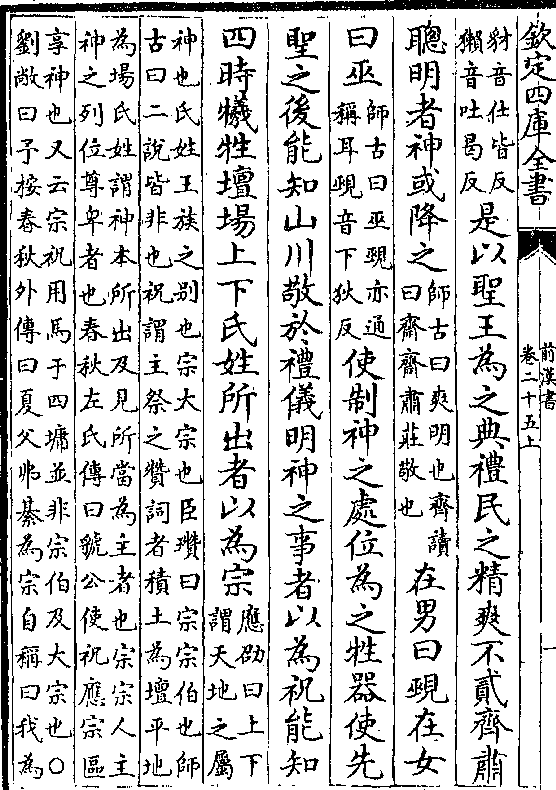 欽定四庫全書
前漢書
卷二十五上
豺音仕皆反
獺音吐曷反
是以聖王為之典禮民之精爽不貳齊肅
聰明者神或降之
師古曰爽明也齊讀
曰齋齋肅莊敬也
在男曰覡在女
曰巫
師古曰巫覡亦通
稱耳覡音下狄反
使制神之處位為之牲器使先
聖之後能知山川敬於禮儀明神之事者以為祝能知
四時犧牲壇場上下氏姓所出者以為宗
應劭曰上下
謂天地之屬
神也氏姓王族之别也宗大宗也臣瓚曰宗宗伯也師
古曰二說皆非也祝謂主祭之贊詞者積土為壇平地
為場氏姓謂神本所出及見所當為主者也宗宗人主
神之列位尊卑者也春秋左氏傳曰虢公使祝應宗區
享神也又云宗祝用馬于四墉並非宗伯及大宗也○
劉敞曰予按春秋外傳曰夏父弗綦為宗自稱曰我為